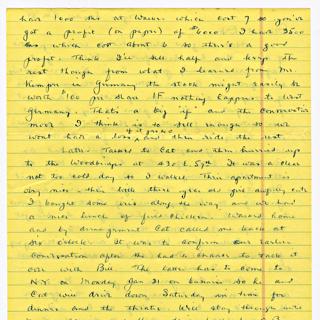 have 1000 shs at which cost 7 so you've
got a profit (on paper) of $6000. I have 3500
shs which cost about 6 so there's a good
profit. Think I'll sell half and keep the
rest though from what I learned from Mr.
Kemper in Germany the stock might easily be
worth $100 per share IF nothing happens to West
Germany. That's a big if and the conservative
move I think is to sell enough so we
wont have a loss if it goes and then ride the rest
Later Talked to Cat and then hurried up
to the Woodbridges at 430 E. 57th. It was a clear
not too cold day so I walked. Their apartment is
very nice - their little three year old girl awfully cute
I bought some along the way and we had
a nice lunch of fried chicken. Walked home
and by arrangement Cat called me back at
six o'clock. It was to confirm our earlier
conversation after she had a chance to talk it
over with Bill. The latter has to come to
N.Y. on Monday Jan 31 on business so he and
Cat will drive down Saturday in time for
dinner and the theatre. Will stay through